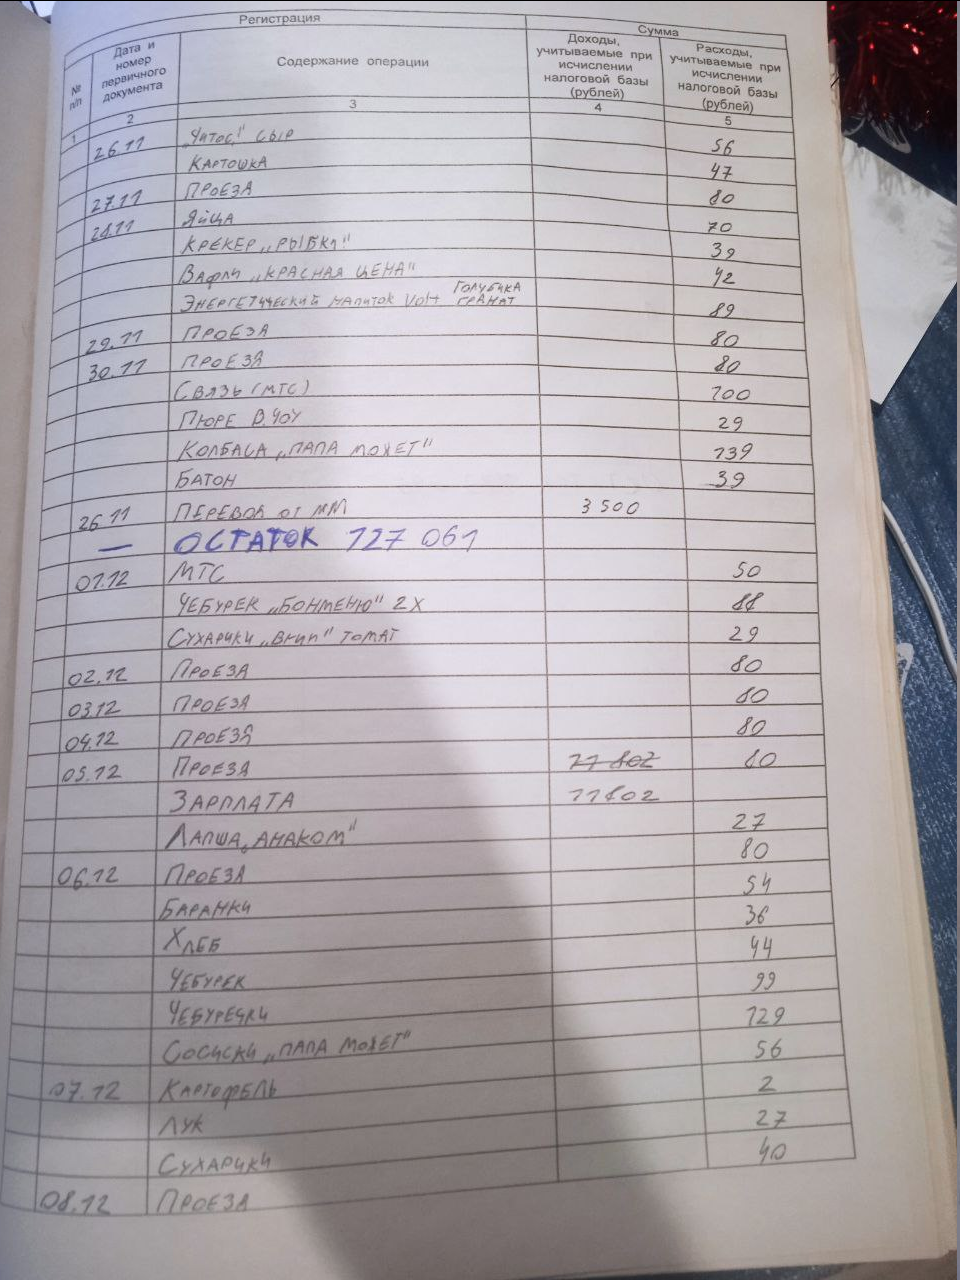 Регистрация Сумма
№ п/п Дата и номер первичного документа Содержание операции Доходы, учитываемые при исчислении налоговой базы (рублей) Расходы, учитываемые при исчислении налоговой базы (рублей)
1 2 3 4 5
26.11 „Читос" сыр 56
Картошка 47
27.11 Проезд 80
28.11 Яйца 70
Крекер „Рыбки" 39
Вафли „Красная цена" 42
Энергетический напиток Volt голубика гранат 89
29.11 Проезд 80
30.11 Проезд 80
Связь (МТС) 100
Пюре 29
Колбаса „Папа может" 139
Батон 39
26.11 Перевод от ММ 3 500
— Остаток 127 061
01.12 МТС 50
Чебурек „Бонменю" 2х 88
Сухарики томат 29
02.12 Проезд 80
03.12 Проезд 80
04.12 Проезд 80
05.12 Проезд 11 802 80
Зарплата 11802
Лапша „Анаком" 27
06.12 Проезд 80
Баранки 54
Хлеб 36
Чебурек 44
Чебуречки 99
Сосиски „Папа может" 129
07.12 Картофель 56
Лук 2
Сухарики 27
08.12 Проезд 40